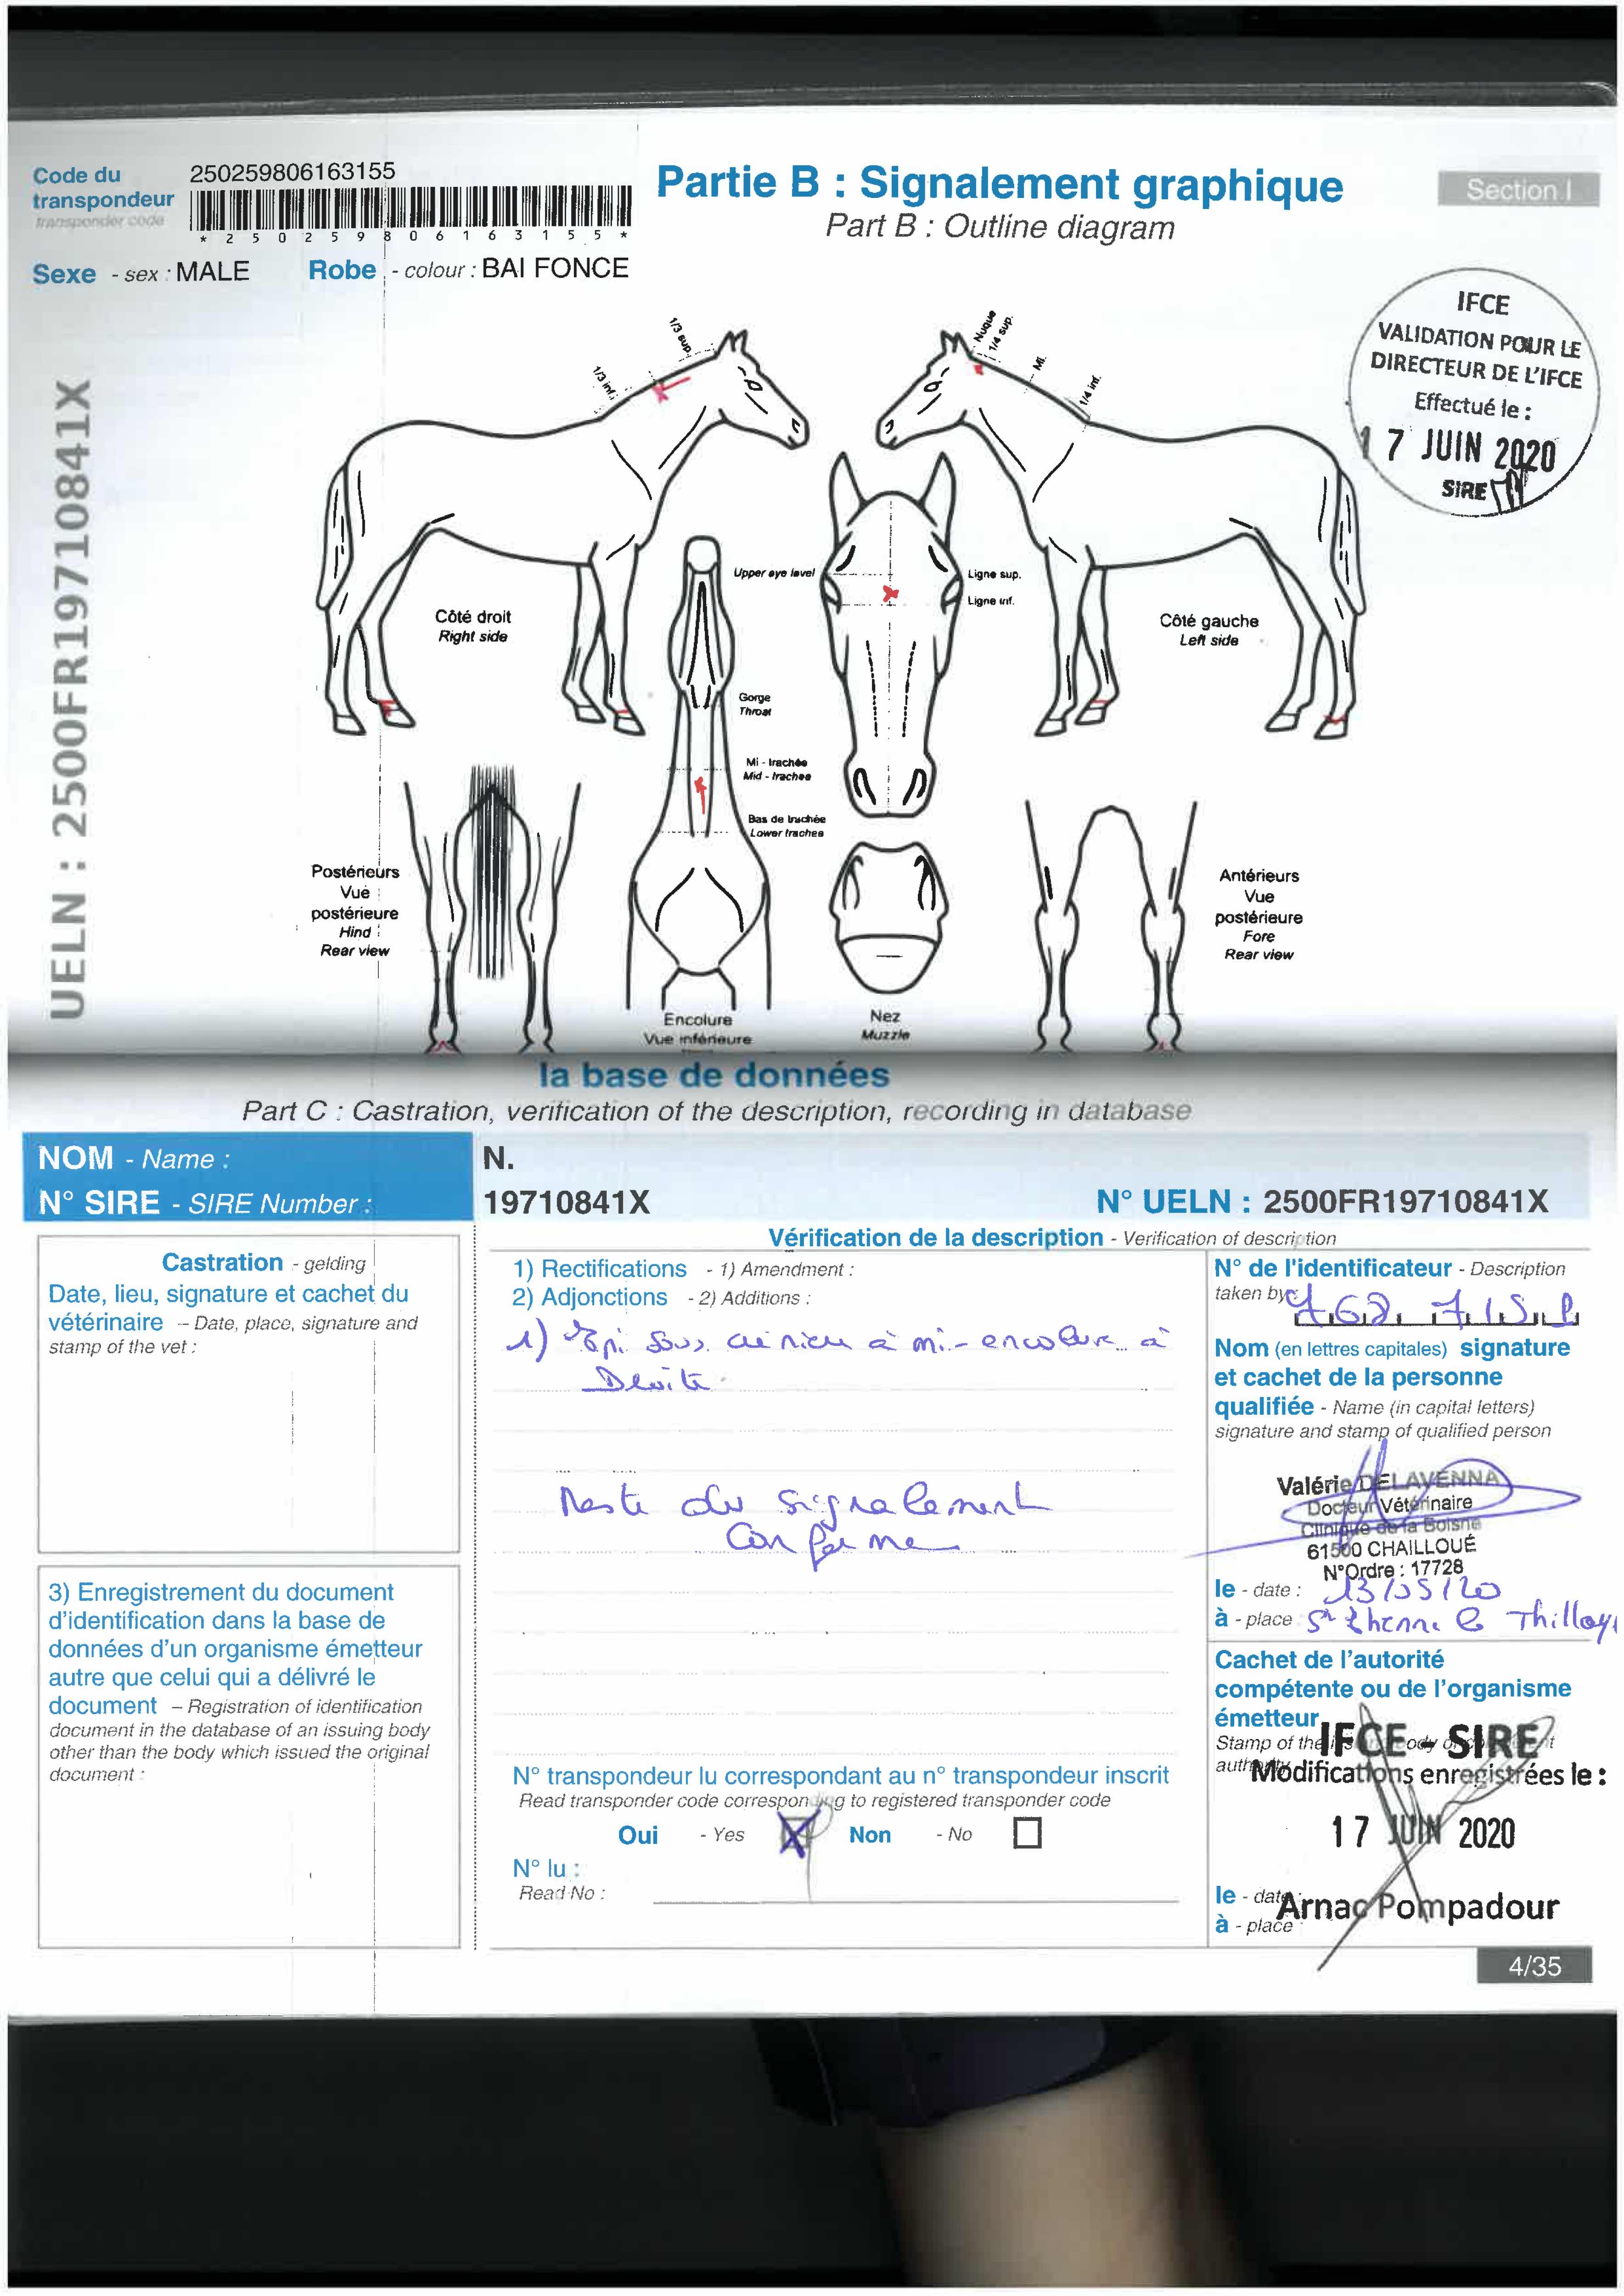 Code du
transpondeur
transponder code
250259806163155
* 2 5 0 2 5 9 8 0 6 1 6 3 1 5 5 *
Partie B : Signalement graphique
Part B : Outline diagram
Section I
Sexe - sex : MALE Robe - colour : BAI FONCE
IFCE
VALIDATION POUR LE
DIRECTEUR DE L'IFCE
Effectué le :
17 JUIN 2020
SIRE
UELN : 2500FR19710841X
1/3 sup.
1/3 inf.
Nuque
1/4 sup.
Mi.
1/4 inf.
Côté droit
Right side
Upper eye level
Ligne sup.
Ligne inf.
Côté gauche
Left side
Gorge
Throat
Mi - trachée
Mid - trachea
Bas de trachée
Lower trachea
Postérieurs
Vue
postérieure
Hind
Rear view
Antérieurs
Vue
postérieure
Fore
Rear view
Encolure
Vue inférieure
Nez
Muzzle
la base de données
Part C : Castration, verification of the description, recording in database
NOM - Name : N.
N° SIRE - SIRE Number : 19710841X N° UELN : 2500FR19710841X
Castration - gelding
Date, lieu, signature et cachet du
vétérinaire – Date, place, signature and
stamp of the vet :
3) Enregistrement du document
d'identification dans la base de
données d'un organisme émetteur
autre que celui qui a délivré le
document – Registration of identification
document in the database of an issuing body
other than the body which issued the original
document :
Vérification de la description - Verification of description
1) Rectifications - 1) Amendment :
2) Adjonctions - 2) Additions :
1) Epi sous crinière à mi-encolure à
Droite.
Reste du signalement
conforme
N° transpondeur lu correspondant au n° transpondeur inscrit
Read transponder code corresponding to registered transponder code
Oui - Yes Non - No
N° lu :
Read No :
N° de l'identificateur - Description
taken by
Nom (en lettres capitales) signature
et cachet de la personne
qualifiée - Name (in capital letters)
signature and stamp of qualified person
Valérie DELAVENNA
Docteur Vétérinaire
Clinique de la Boisne
61500 CHAILLOUÉ
N°Ordre : 17728
le - date : 13/05/20
à - place : St Etienne la Thillaye
Cachet de l'autorité
compétente ou de l'organisme
émetteur
Stamp of the
IFCE - SIRE
Modifications enregistrées le :
17 JUIN 2020
le - date :
à - place :
Arnac Pompadour
4/35